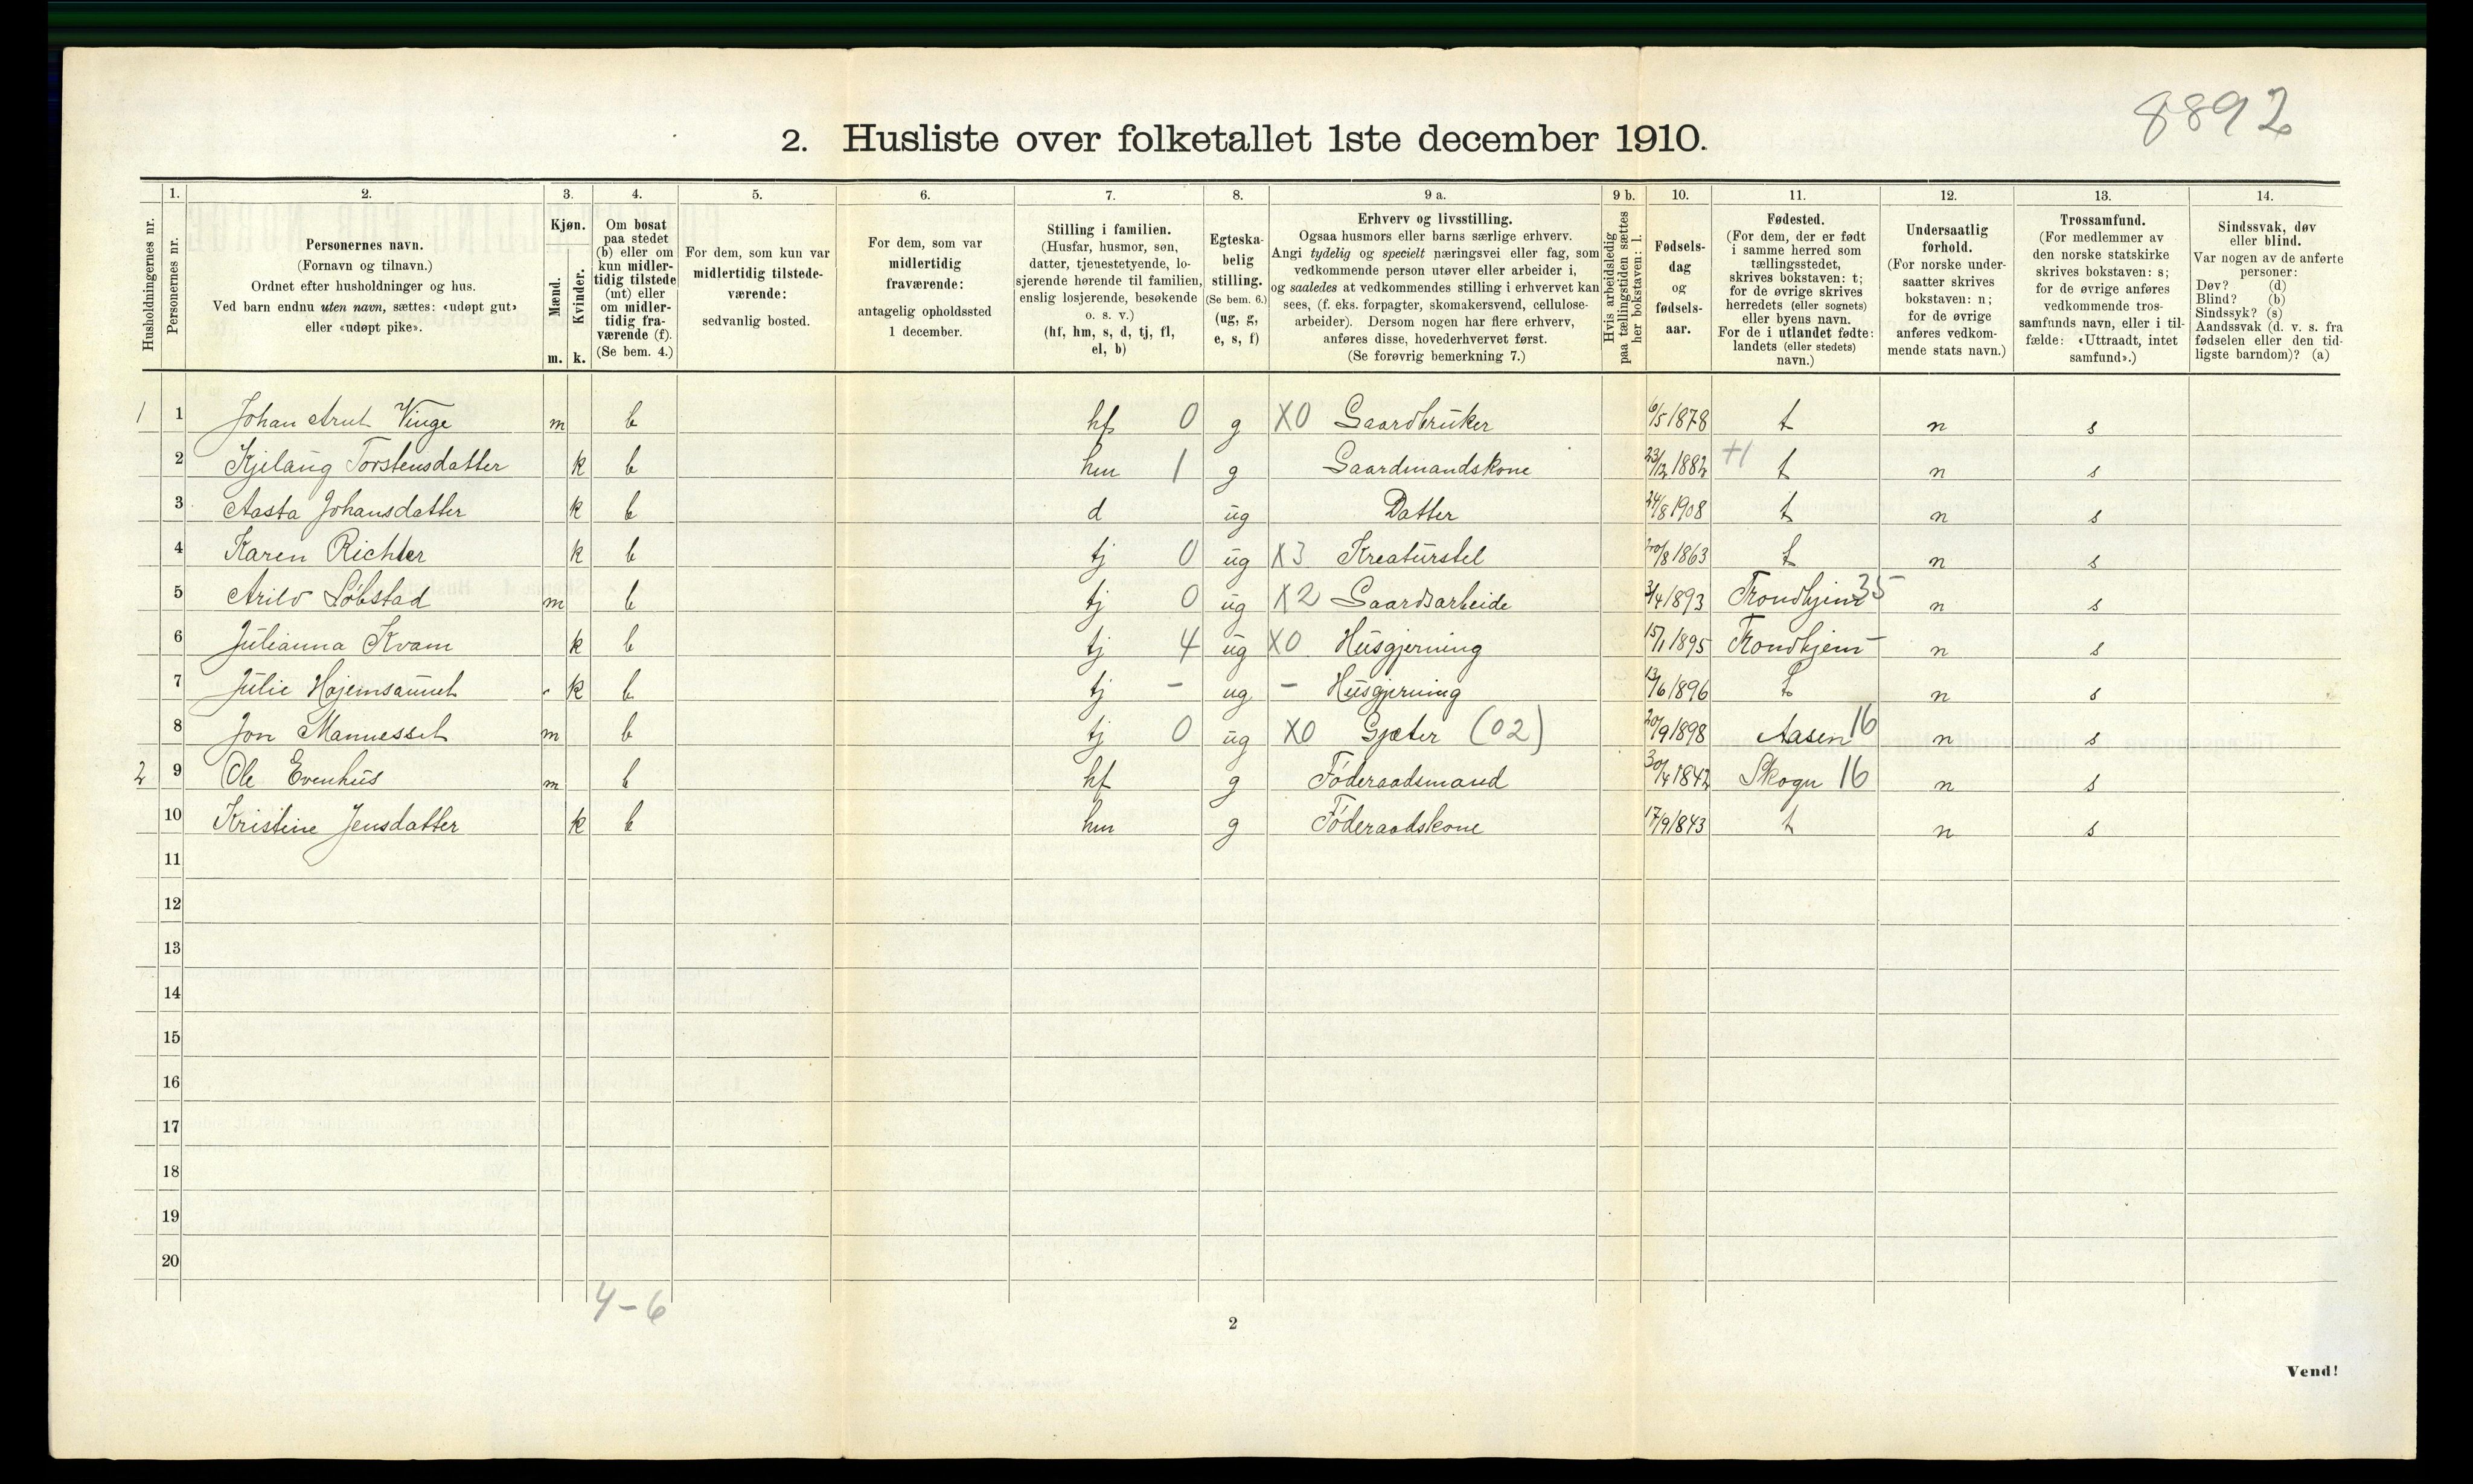 8892
2. Husliste over folketallet 1ste december 1910.
Husholdningernes nr.
1. Personernes nr.
2. Personernes navn. (Fornavn og tilnavn.) Ordnet efter husholdninger og hus. Ved barn endnu uten navn, sættes: «udøpt gut» eller «udøpt pike».
3. Kjøn. Mænd. m. Kvinder. k.
4. Om bosat paa stedet (b) eller om kun midlertidig tilstede (mt) eller om midlertidig fraværende (f). (Se bem. 4.)
5. For dem, som kun var midlertidig tilstedeværende: sedvanlig bosted.
6. For dem, som var midlertidig fraværende: antagelig opholdssted 1 december.
7. Stilling i familien. (Husfar, husmor, søn, datter, tjenestetyende, losjerende hørende til familien, enslig losjerende, besøkende o. s. v.) (hf, hm, s, d, tj, fl, el, b)
8. Egteskabelig stilling. (Se bem. 6.) (ug, g, e, s, f)
9 a. Erhverv og livsstilling. Ogsaa husmors eller barns særlige erhverv. Angi tydelig og specielt næringsvei eller fag, som vedkommende person utøver eller arbeider i, og saaledes at vedkommendes stilling i erhvervet kan sees, (f. eks. forpagter, skomakersvend, cellulosearbeider). Dersom nogen har flere erhverv, anføres disse, hovederhvervet først. (Se forøvrig bemerkning 7.)
9 b. Hvis arbeidsledig paa tællingstiden sættes her bokstaven: l.
10. Fødselsdag og fødselsaar.
11. Fødested. (For dem, der er født i samme herred som tællingsstedet, skrives bokstaven: t; for de øvrige skrives herredets (eller sognets) eller byens navn. For de i utlandet fødte: landets (eller stedets) navn.)
12. Undersaatlig forhold. (For norske undersaatter skrives bokstaven: n; for de øvrige anføres vedkommende stats navn.)
13. Trossamfund. (For medlemmer av den norske statskirke skrives bokstaven: s; for de øvrige anføres vedkommende trossamfunds navn, eller i tilfælde: «Uttraadt, intet samfund».)
14. Sindssvak, døv eller blind. Var nogen av de anførte personer: Døv? (d) Blind? (b) Sindssyk? (s) Aandssvak (d. v. s. fra fødselen eller den tidligste barndom)? (a)
1 1 Johan Arnt Vinge m b hf 0 g X0 Gaardbruker 6/5 1878 t n s
2 Kjelaug Torstensdatter k b hm 1 g Gaardmandskone 23/12 1882 +1 t n s
3 Aasta Johansdatter k b d ug Datter 24/8 1908 t n s
4 Karen Richter k b tj 0 ug X3 Kreaturstel 20/8 1863 t n s
5 Arild Løbstad m b tj 0 ug X2 Gaardsarbeide 3/4 1893 Trondhjem 35 n s
6 Julianna Kvam k b tj 4 ug X0 Husgjerning 15/1 1895 Trondhjem - n s
7 Julie Hojemsaunet k b tj - ug - Husgjerning 13/6 1896 t n s
8 Jon Mannesset m b tj 0 ug X0 Gjæter (02) 20/9 1898 Aasen 16 n s
2 9 Ole Evenhus m b hf g Føderaadsmand 30/4 1842 Skogn 16 n s
10 Kristine Jensdatter k b hm g Føderaadskone 17/9 1843 t n s
11
12
13
14
15
16
17
18
19
20
4-6
2
Vend!